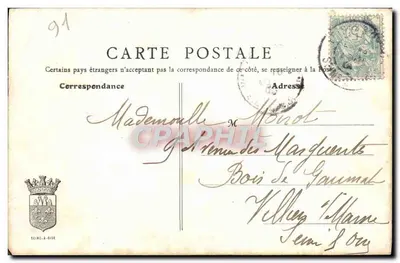 91
CARTE POSTALE
Certains pays étrangers n'acceptant pas la correspondance de ce côté, se renseigner à la
Correspondance
Adresse
M
Mademoiselle
CPAPHIL
9 Avenue des Marguerites
Bois de Gaumont
Villiers s/ Marne
Seine & Oise